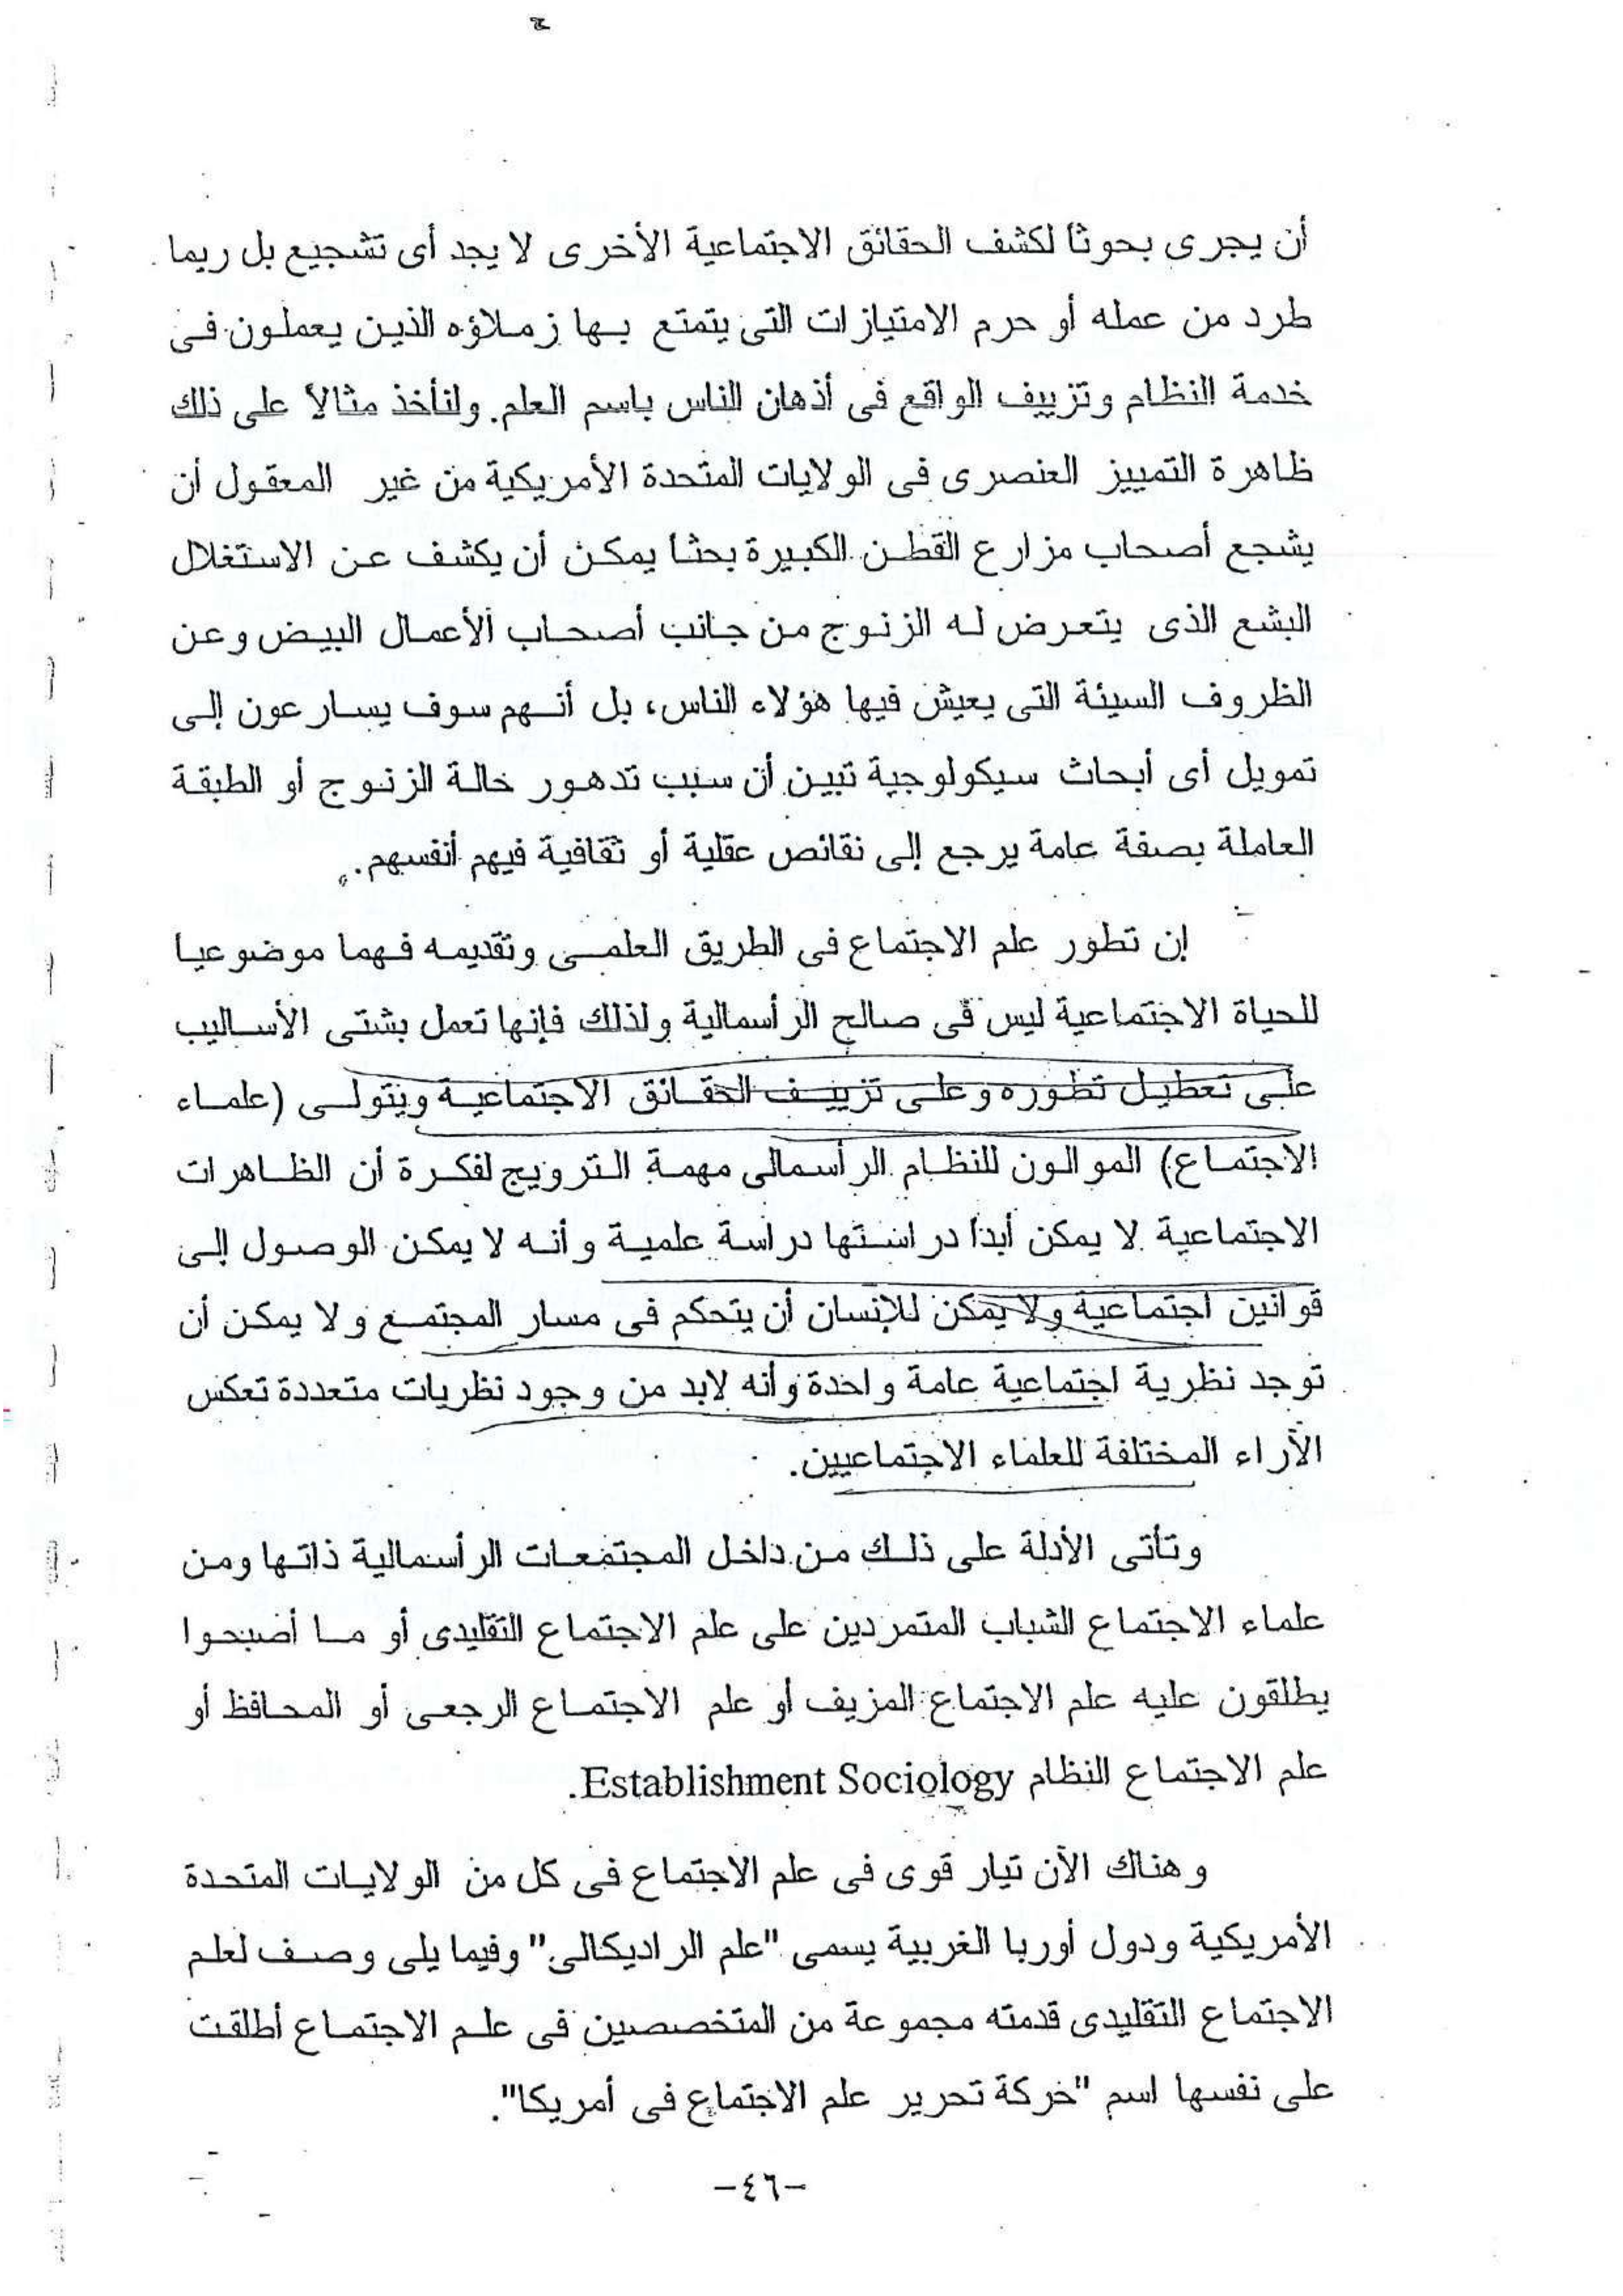 أن يجرى بحوثاً لكشف الحقائق الاجتماعية الأخرى لا يجد أى تشجيع بل ربما
طرد من عمله أو حرم الامتيازات التى يتمتع بها زملاؤه الذين يعملون فى
خدمة النظام وتزييف الواقع فى أذهان الناس باسم العلم. ولنأخذ مثالاً على ذلك
ظاهرة التمييز العنصرى فى الولايات المتحدة الأمريكية من غير المعقول أن
يشجع أصحاب مزارع القطن الكبيرة بحثا يمكن أن يكشف عن الاستغلال
البشع الذى يتعرض له الزنوج من جانب أصحاب الأعمال البيض وعن
الظروف السيئة التى يعيش فيها هؤلاء الناس، بل أنهم سوف يسارعون إلى
تمويل أى أبحاث سيكولوجية تبين أن سبب تدهور حالة الزنوج أو الطبقة
العاملة بصفة عامة يرجع إلى نقائص عقلية أو ثقافية فيهم أنفسهم.
إن تطور علم الاجتماع فى الطريق العلمى وتقديمه فهما موضوعيا
للحياة الاجتماعية ليس فى صالح الرأسمالية ولذلك فإنها تعمل بشتى الأساليب
على تعطيل تطوره وعلى تزييف الحقائق الاجتماعية ويتولى (علماء
الاجتماع) الموالون للنظام الرأسمالى مهمة الترويج لفكرة أن الظاهرات
الاجتماعية لا يمكن أبداً دراستها دراسة علمية وأنه لا يمكن الوصول إلى
قوانين اجتماعية ولا يمكن للإنسان أن يتحكم فى مسار المجتمع ولا يمكن أن
توجد نظرية اجتماعية عامة واحدة وأنه لابد من وجود نظريات متعددة تعكس
الأراء المختلفة للعلماء الاجتماعيين.
وتأتى الأدلة على ذلك من داخل المجتمعات الرأسمالية ذاتها ومن
علماء الاجتماع الشباب المتمردين على علم الاجتماع التقليدى أو ما أصبحوا
يطلقون عليه علم الاجتماع المزيف أو علم الاجتماع الرجعى أو المحافظ أو
علم الاجتماع النظام Establishment Sociology.
وهناك الآن تيار قوى فى علم الاجتماع فى كل من الولايات المتحدة
الأمريكية ودول أوربا الغربية يسمى "علم الراديكالى" وفيما يلى وصف لعلم
الاجتماع التقليدى قدمته مجموعة من المتخصصين فى علم الاجتماع أطلقت
على نفسها اسم "حركة تحرير علم الاجتماع فى أمريكا".
-٤٦-